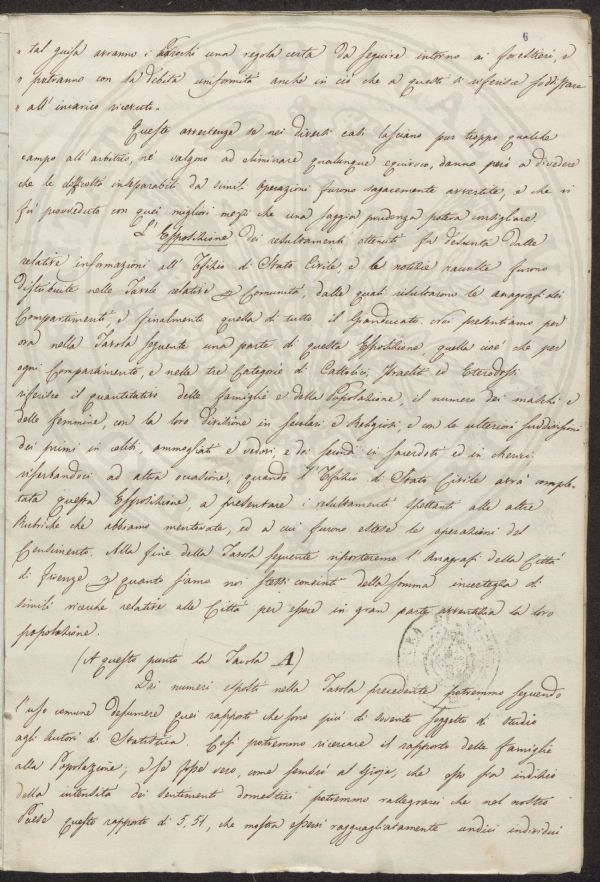 6
" tal guisa avranno i Parochi una regola certa da seguire intorno ai forestieri, e
" potranno con la debita uniformità anche in ciò che a questi si riferisce sodisfare
" all'incarico ricevuto.
Queste avvertenze se nei diversi casi lasciano pur troppo qualche
campo all'arbitrio, nè valgono ad eliminare qualunque equivoco, danno però a divedere
che le difficoltà inseparabili da simili operazioni furono sagacemente avvertite, e che vi
fù provveduto con quei migliori mezzi che una saggia prudenza poteva consigliare.
L'Esposizione dei resultamenti ottenuti fu desunta dalle
relative informazioni all'Ufizio di Stato Civile, e le notizie raccolte furono
distribuite nelle Tavole relative p Comunità, dalle quali resultarono le anagrafi dei
Compartimenti e finalmente quella di tutto il Granducato. Noi presentiamo per
ora nella Tavola seguente una parte di questa Esposizione quella cioè che per
ogni Compartimento, e nelle tre Categorie di Cattolici, Israeliti ed Eterodossi
riferisce il quantitativo delle famiglie e della Popolazione, il numero dei maschi e
delle femmine, con la loro divisione in secolari e Religiosi, e con le ulteriori suddivisioni
dei primi in celibi ammogliati e vedovi, e dei secondi in sacerdoti ed in cherici
riserbandoci ad altra occasione, quando l'Ufizio di Stato Civile avrà comple-
tata questa Esposizione, a presentare i resultamenti spettanti alle altre
Rubriche che abbiamo mentovate, ed a cui furono estese le operazioni del
Censimento. Alla fine della Tavola seguente riporteremo l'Anagrafi della Città
di Firenze p quanto siamo noi stessi convinti della somma incertezza di
simili ricerche relative alle Città per essere in gran parte avventizia la loro
popolazione.
(A questo punto la Tavola A)
Dai numeri esposti nella Tavola precedente potremmo seguendo
l'uso comune desumere quei rapporti che sono più di sovente soggetto di studio
agli Autori di Statistica. Così potremmo ricercare il rapporto delle famiglie
alla Popolazione; e se fosse vero, come sembrò al Gioja, che esso sia indizio
della intensità dei sentimenti domestici potremmo rallegrarci che nel nostro
Paese questo rapporto di 5,51, che mostra esservi ragguagliatamente undici individui